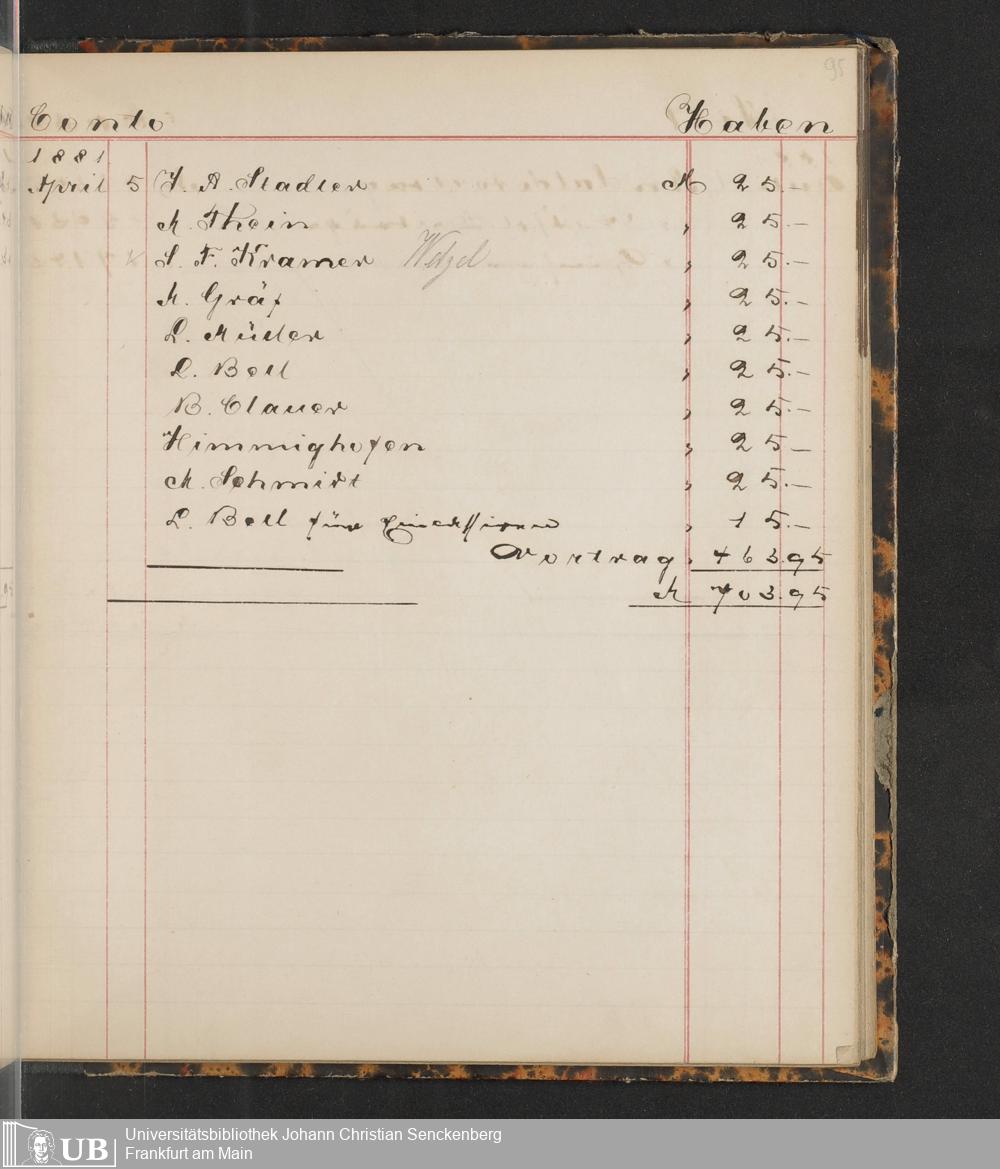 95
Conto Haben
1881
April 5 J. A. Stadler M 25.–
M. Thein " 25.–
S. F. Kramer Wetzel " 25.–
M. Gräf " 25.–
L. Müller " 25.–
L. Boll " 25.–
B. Clauer " 25.–
Himmighofen " 25–
M. Schmidt " 25.–
L. Boll für " 15.–
Vortrag " 463.95
M 703.95
UB Universitätsbibliothek Johann Christian Senckenberg
Frankfurt am Main